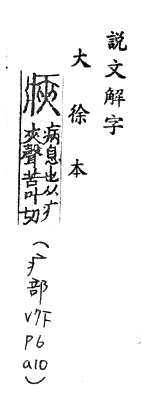 説文解字
大徐本
㾜
病息也从疒
夾聲苦叶切
(疒部
V7F
P6
a10)